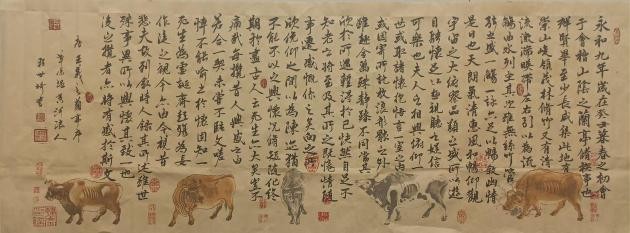 永和九年歲在癸丑暮春之初會
于會稽山陰之蘭亭脩稧事也
群賢畢至少長咸集此地有
崇山峻領茂林脩竹又有清
流激湍映帶左右引以為流
觴曲水列坐其次雖無絲竹管
弦之盛一觴一詠亦足以暢敘幽情
是日也天朗氣清惠風和暢仰觀
宇宙之大俯察品類之盛所以遊
目騁懷足以極視聽之娛信
可樂也夫人之相與俯仰一
世或取諸懷抱悟言一室之內
或因寄所託放浪形骸之外
雖趣舍萬殊靜躁不同當其
欣於所遇暫得於己快然自足不
知老之將至及其所之既倦情隨
事遷感慨係之矣向之所
欣俛仰之間以為陳迹猶
不能不以之興懷況脩短隨化終
期於盡古人云死生亦大矣豈不
痛哉每攬昔人興感之由
若合一契未嘗不臨文嗟
悼不能喻之於懷固知一
死生為虛誕齊彭殤為妄
作後之視今亦由今之視昔
悲夫故列敘時人錄其所述雖世
殊事異所以興懷其致一也
後之攬者亦將有感於斯文
王羲之蘭亭序